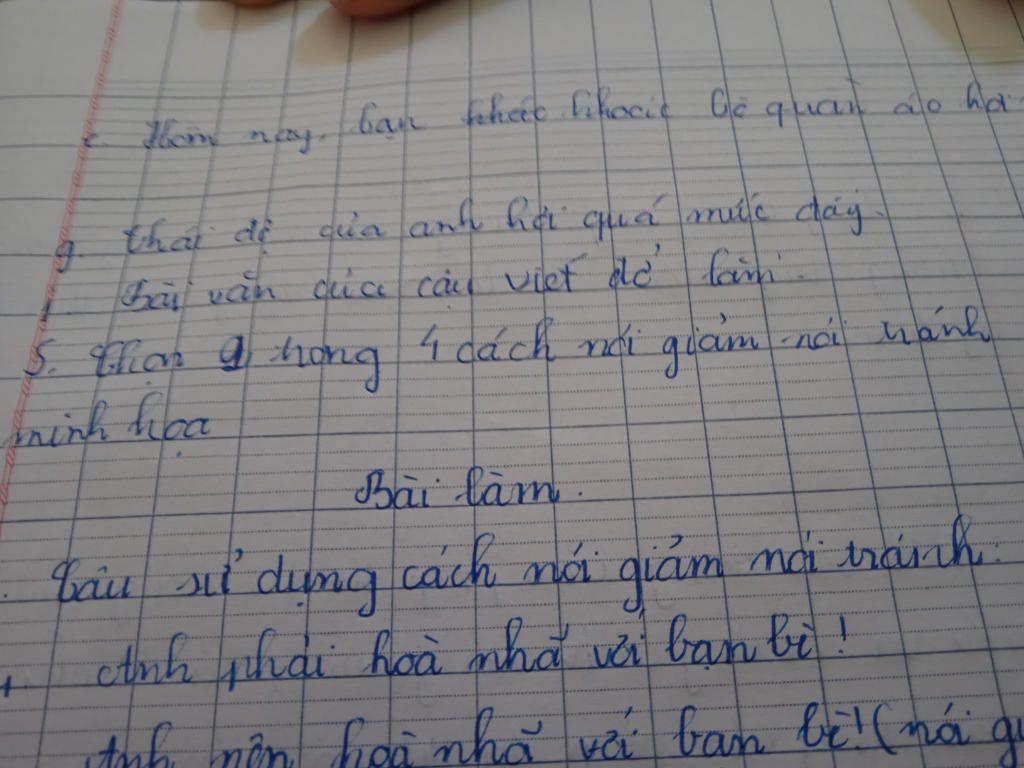 Hôm nay, bạn khoác bộ quần áo hơi
g. thái độ của anh hơi quá mức đấy.
Bài văn của cậu viết dở lắm.
5. Chọn 1 trong 4 cách nói giảm nói tránh
minh họa
Bài làm.
Câu sử dụng cách nói giảm nói tránh.
+ Anh phải hoà nhã với bạn bè!
Anh nên hoà nhã với bạn bè! (nói